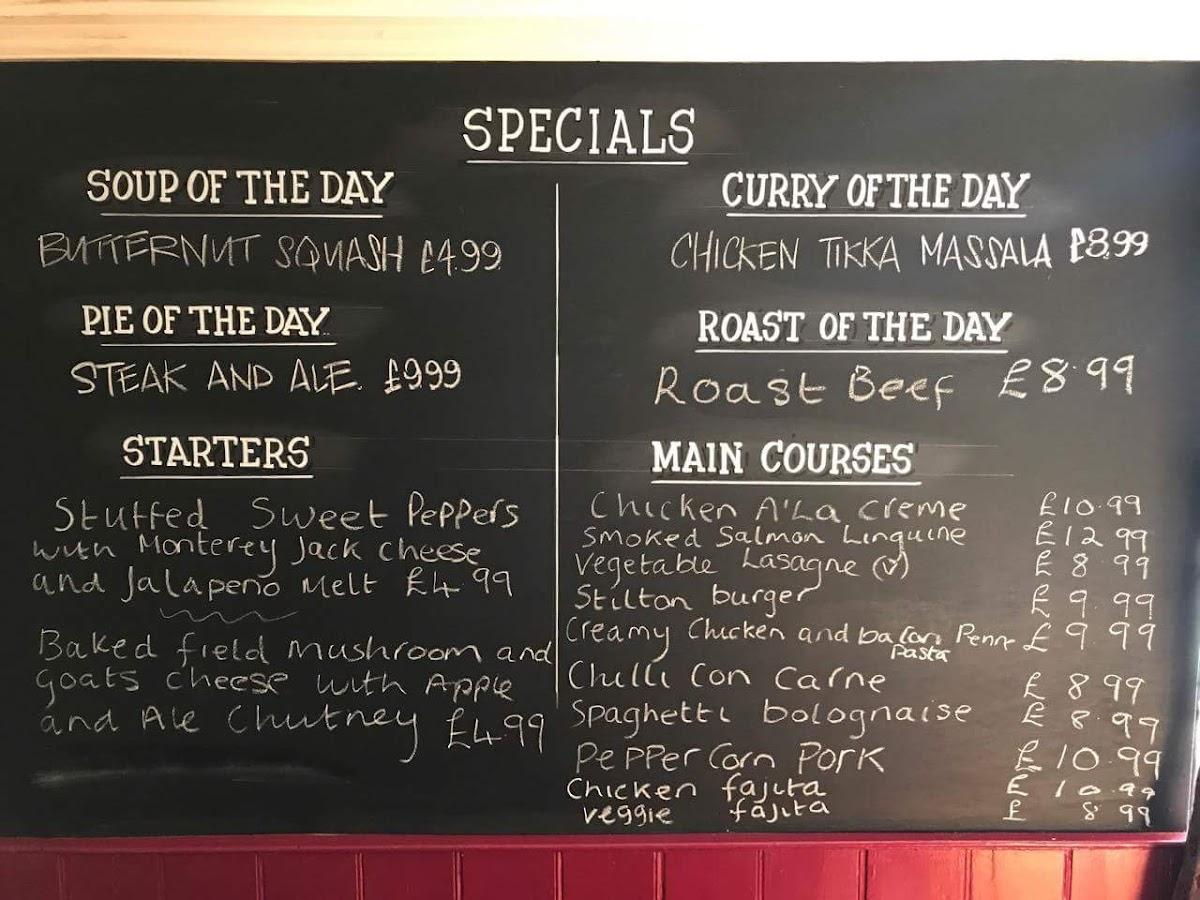 SPECIALS
SOUP OF THE DAY
BUTTERNUT SQUASH £4.99
PIE OF THE DAY
STEAK AND ALE. £9.99
STARTERS
Stuffed Sweet Peppers
with Monterey Jack cheese
and Jalapeno Melt £4.99
Baked field mushroom and
goats cheese with Apple
and Ale Chutney £4.99
CURRY OF THE DAY
CHICKEN TIKKA MASSALA £8.99
ROAST OF THE DAY
Roast Beef £8.99
MAIN COURSES
Chicken A'La creme £10.99
Smoked Salmon Linguine £12.99
Vegetable Lasagne (v) £8.99
Stilton burger £9.99
Creamy Chicken and bacon Penne £9.99
Pasta
Chilli Con Carne £8.99
Spaghetti bolognaise £8.99
Pepper Corn Pork £10.99
Chicken fajita £10.99
veggie fajita £8.99